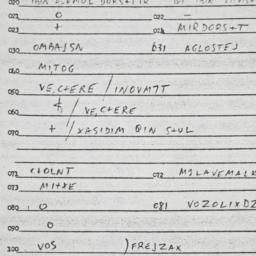 021 O 022 —
023 + 024 MIRDORS+T
030 OMBAJSN 031 AGLOSTEJ
040 MITOG
050 VE,CTERE / INOVMTT
060 $ // VE,CTERE
070 + // XASIDIM QIN STUL
071 CHOLNT 072 MILAVEMALK
073 MITXE
080 O 081 VOZOLIXDZ
090 O
100 VOS ) FREJZAX